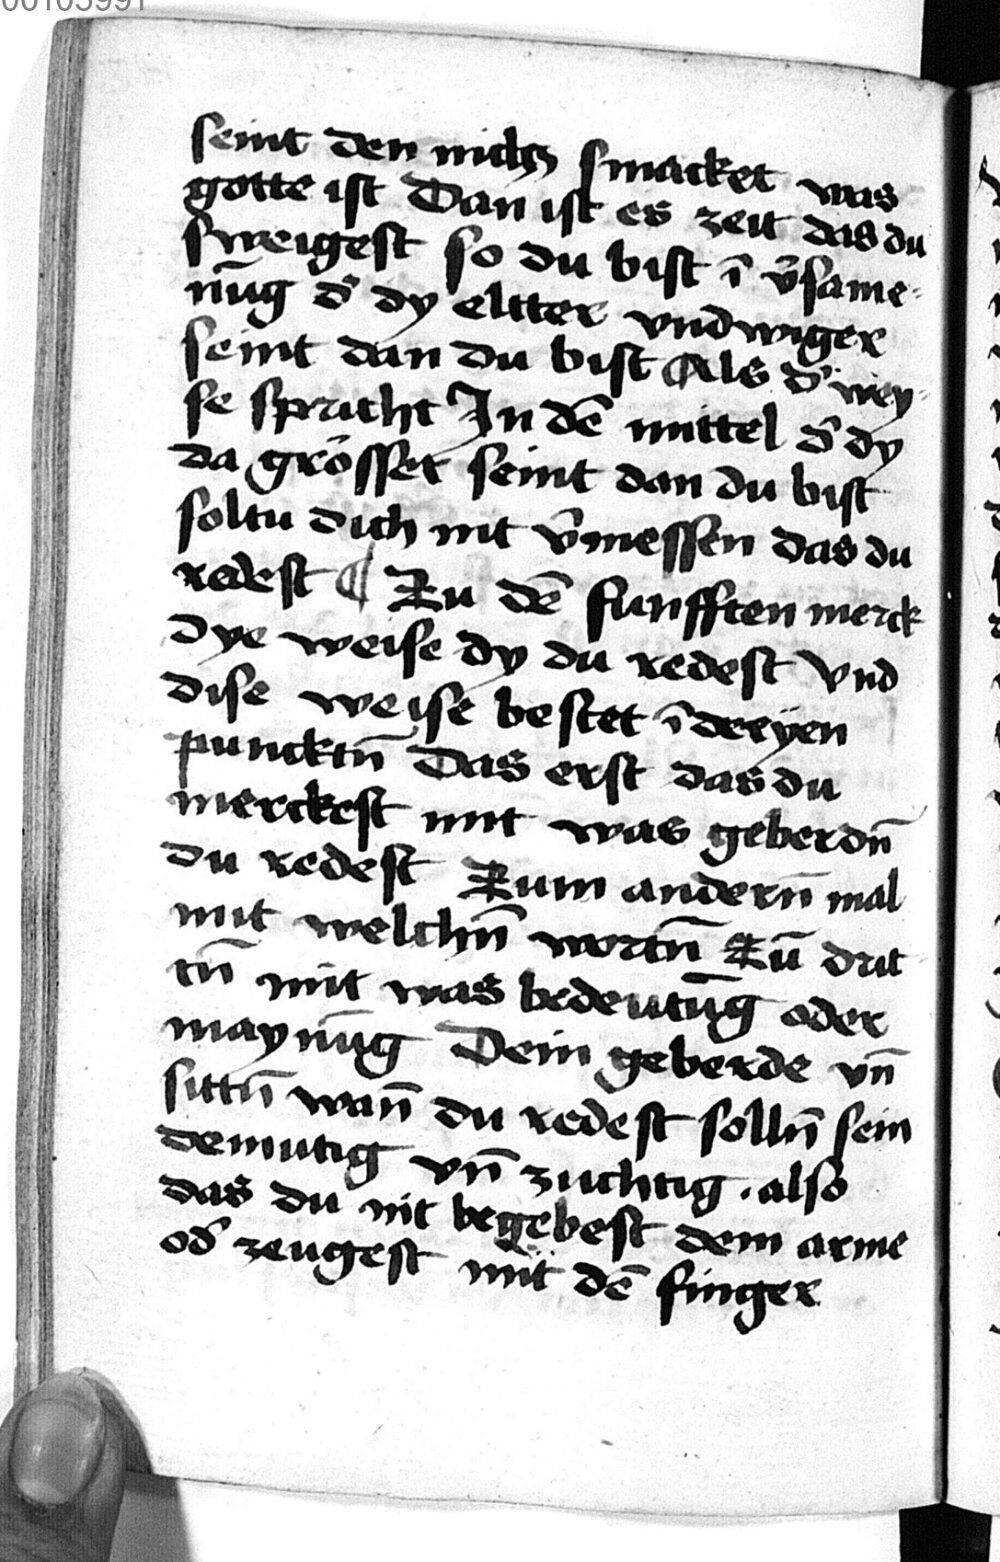 00105991
seint den nichtz smacket was
gotte ist Dan ist es zeit das du
sweigest so du bist ī v̄same-
nūg d᷑ dy eltter vnd wiger
seint dan du bist Als d᷑ wey-
se spricht In dē mittel d᷑ dy
da grösser seint dan du bist
soltu dich nit v̄messen das du
redest ¶ Zu dē funfften merck
Dye weise dy du redest Vnd
dise weise bestet ī dreyen
puncktn̄ Das erst das du
merckest mit was geberdn̄
du redest Zum andern̄ mal
mit welchn̄ wortn̄ Zū drit
tn̄ mit was bedeutūg oder
maynūg Dein geberde vn̄
sittn̄ wan̄ du redest solln̄ sein
demutig vn̄ zuchtig . also
das du nit begebest dem arme
od᷑ zeugest mit dē finger